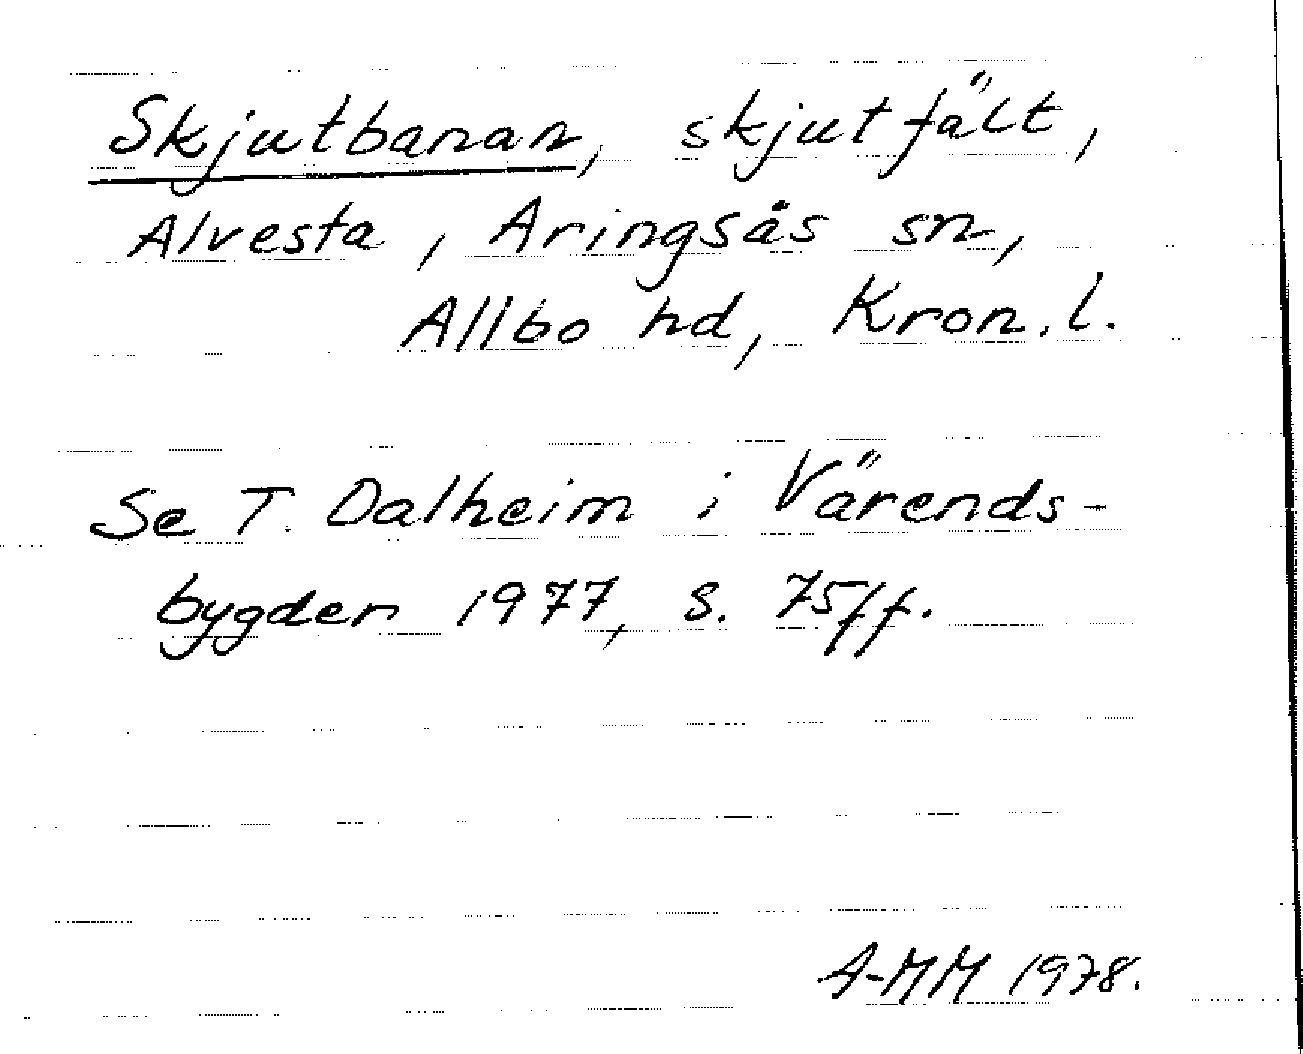 Skjutbanan, skjutfält,
Alvesta, Aringsås sn,
Allbo hd, Kron. l.
Se T. Dalheim i Värends-
bygden 1977, s. 75ff.
A-MM 1978.